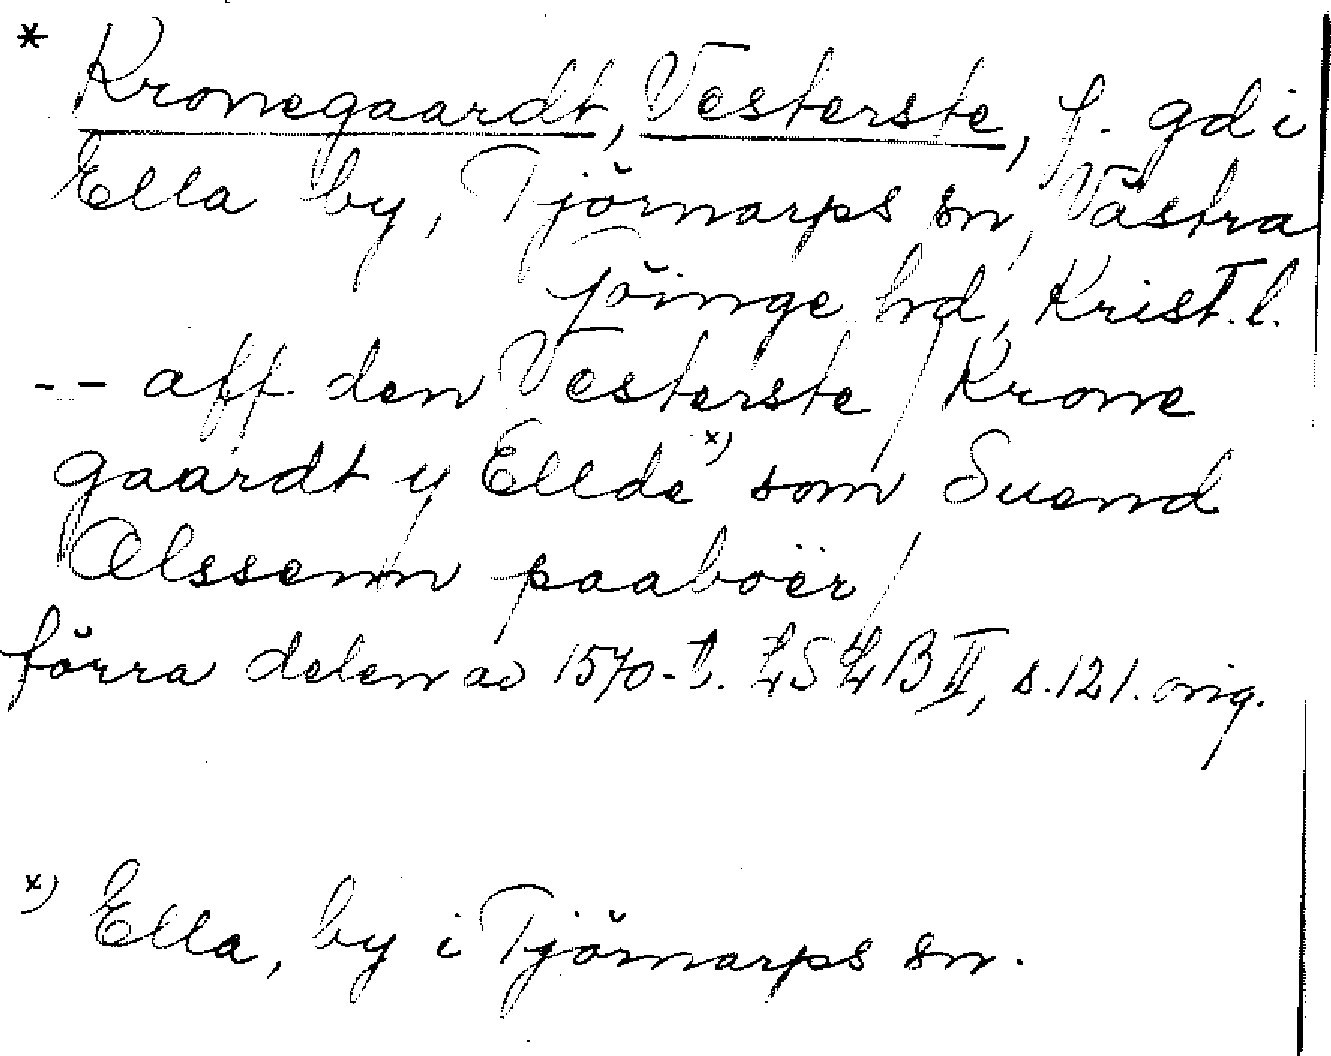 * Kronegaardt, Vesterste, f. gd i
Ella by, Tjörnarps sn, Västra
Göinge hd, Krist. l.
-- aff den Vesterste / Krone
gaardt y Ellde x) som Suend
Olssenn paaboer /
förra delen av 1570-t. LSLB II, s. 121. orig.
x) Ella, by i Tjörnarps sn.